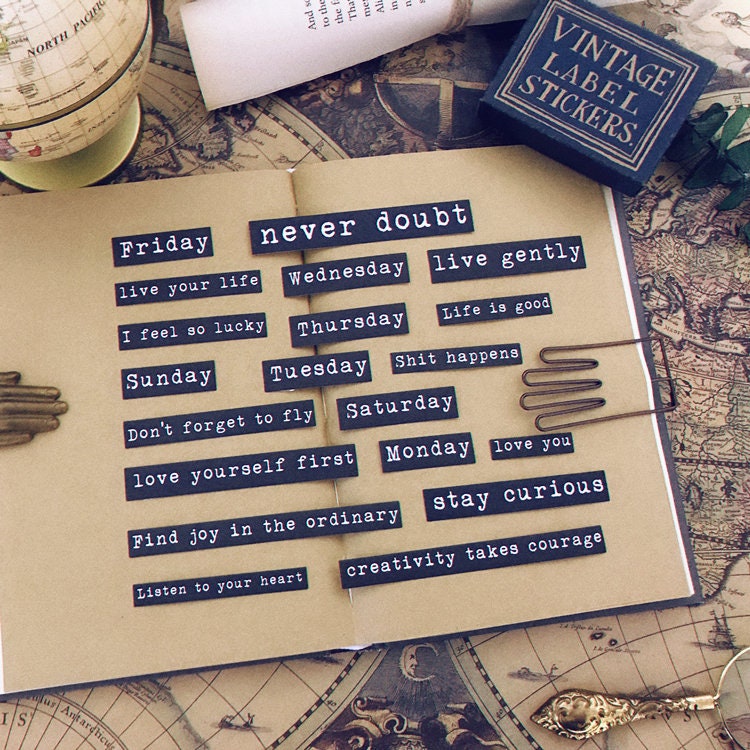 NORTH PACIFIC
VINTAGE
LABEL
STICKERS.
Friday
never doubt
live your life
Wednesday
live gently
I feel so lucky
Thursday
Life is good
Sunday
Tuesday
Shit happens
Don't forget to fly
Saturday
love yourself first
Monday
love you
Find joy in the ordinary
stay curious
Listen to your heart
creativity takes courage